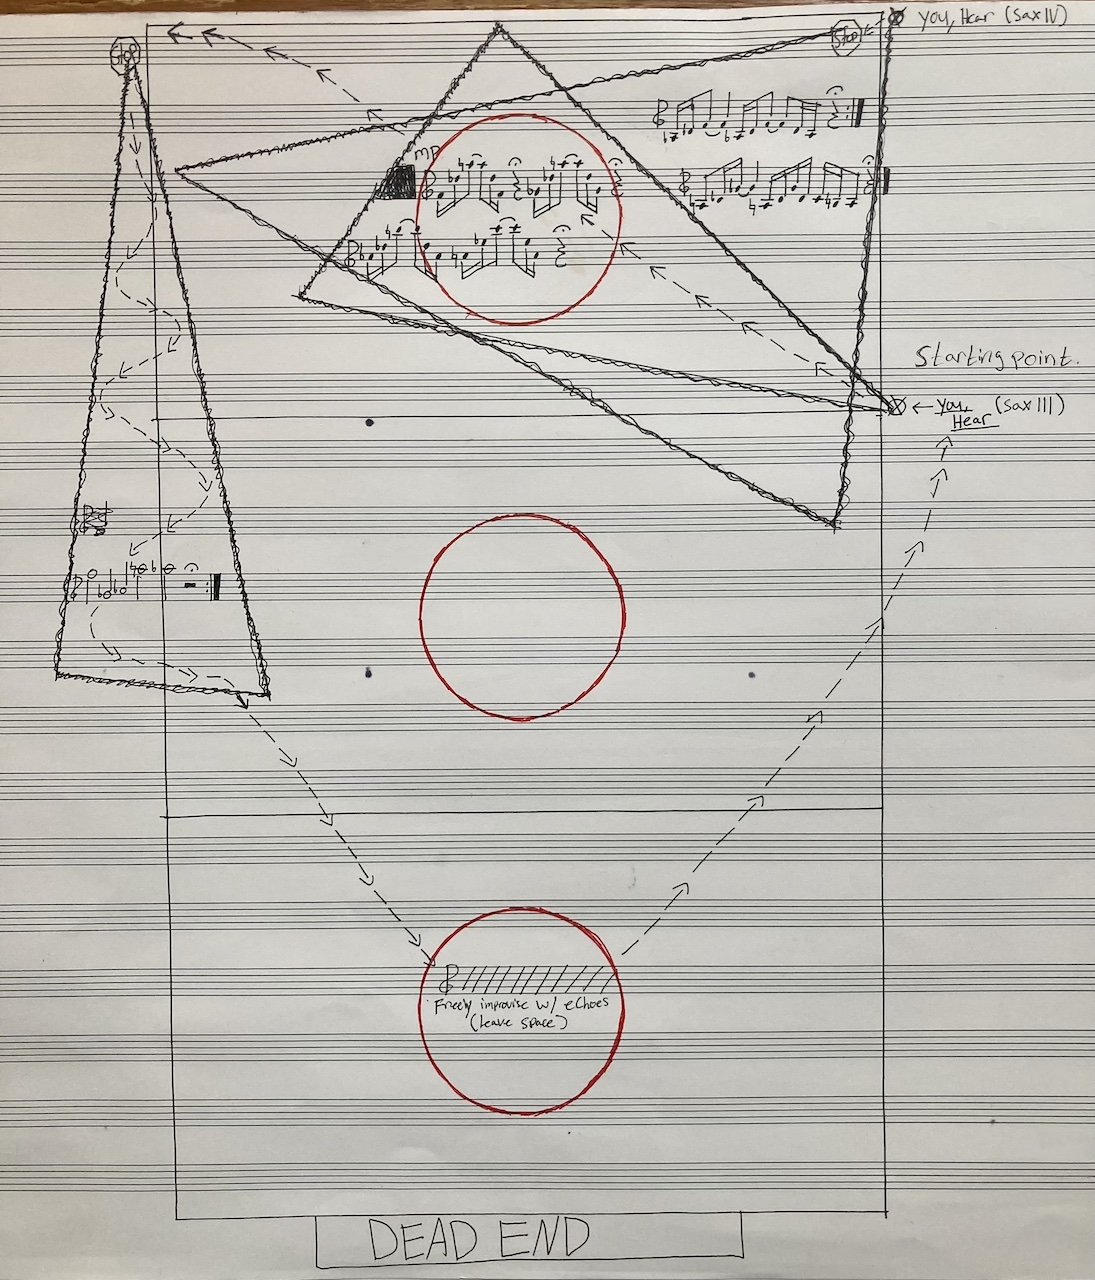 You, Hear (Sax IV)
Stop
Stop
mp
Starting point.
You, (Sax III)
Hear
Freely improvise w/ echoes
(leave space)
DEAD END